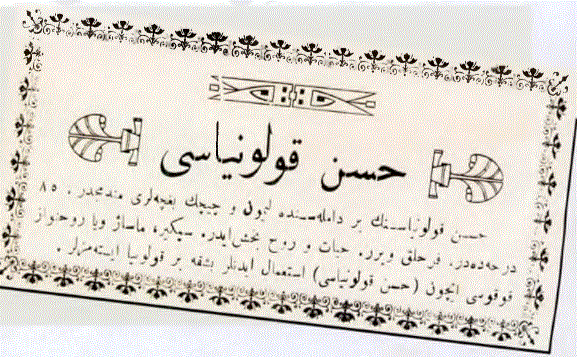 حسن قولونیاسی
حسن قولونیاسنك بر دامله‌سنده لیمون و چیچك بغچه‌لری مندمجدر . ٨٥
درجه‌ده‌در. فرحلق ویرر. حیات و روح بخش ایدر. سیكیره ماساژ ویا روحنواز
قوقوسی ایچون (حسن قولونیاسی) استعمال ایدنلر بشقه بر قولونیا ایسته‌مزلر .